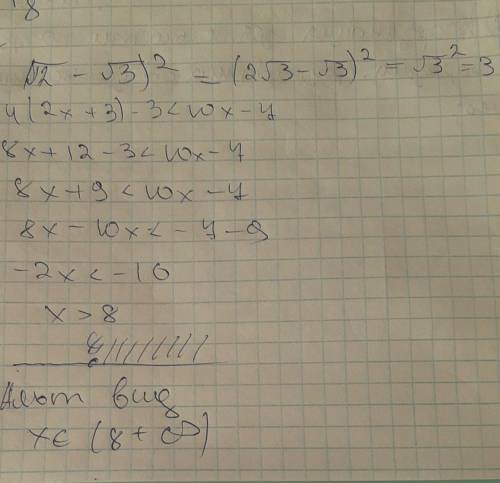 8
√2 - √3)² = (2√3 - √3)² = √3² = 3
4(2x+3)-3<10x-7
8x+12-3<10x-7
8x+9<10x-7
8x-10x<-7-9
-2x<-16
x>8
8
вид
x∈ (8+∞)